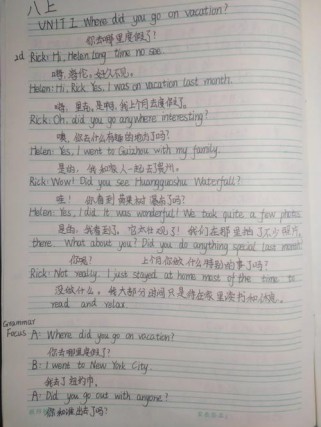 八上
UNIT 1 Where did you go on vacation?
你去哪里度假了?
2d Rick: Hi, Helen long time no see.
嗨,海伦,好久不见。
Helen: Hi, Rick Yes, I was on vacation last month.
嗨,里克,是啊,我上个月去度假了。
Rick: Oh, did you go anywhere interesting?
噢,你去什么有趣的地方了吗?
Helen: Yes, I went to Guizhou with my family.
是的,我和家人一起去了贵州。
Rick: Wow! Did you see Huangguoshu Waterfall?
哇!你看到黄果树瀑布了吗?
Helen: Yes, I did. It was wonderful! We took quite a few photos
是的,我看到了,它太壮观了!我们在那里拍了不少照片
there. What about you? Did you do anything special last month
你呢?上个月你做什么特别的事了吗?
Rick: Not really. I just stayed at home most of the time to
没做什么,我大部分时间只是待在家里读书和休息。
read and relax.
Grammar Focus A: Where did you go on vacation?
你去哪里度假了?
B: I went to New York City.
我去了纽约市。
A: Did you go out with anyone?
你和谁出去了吗?